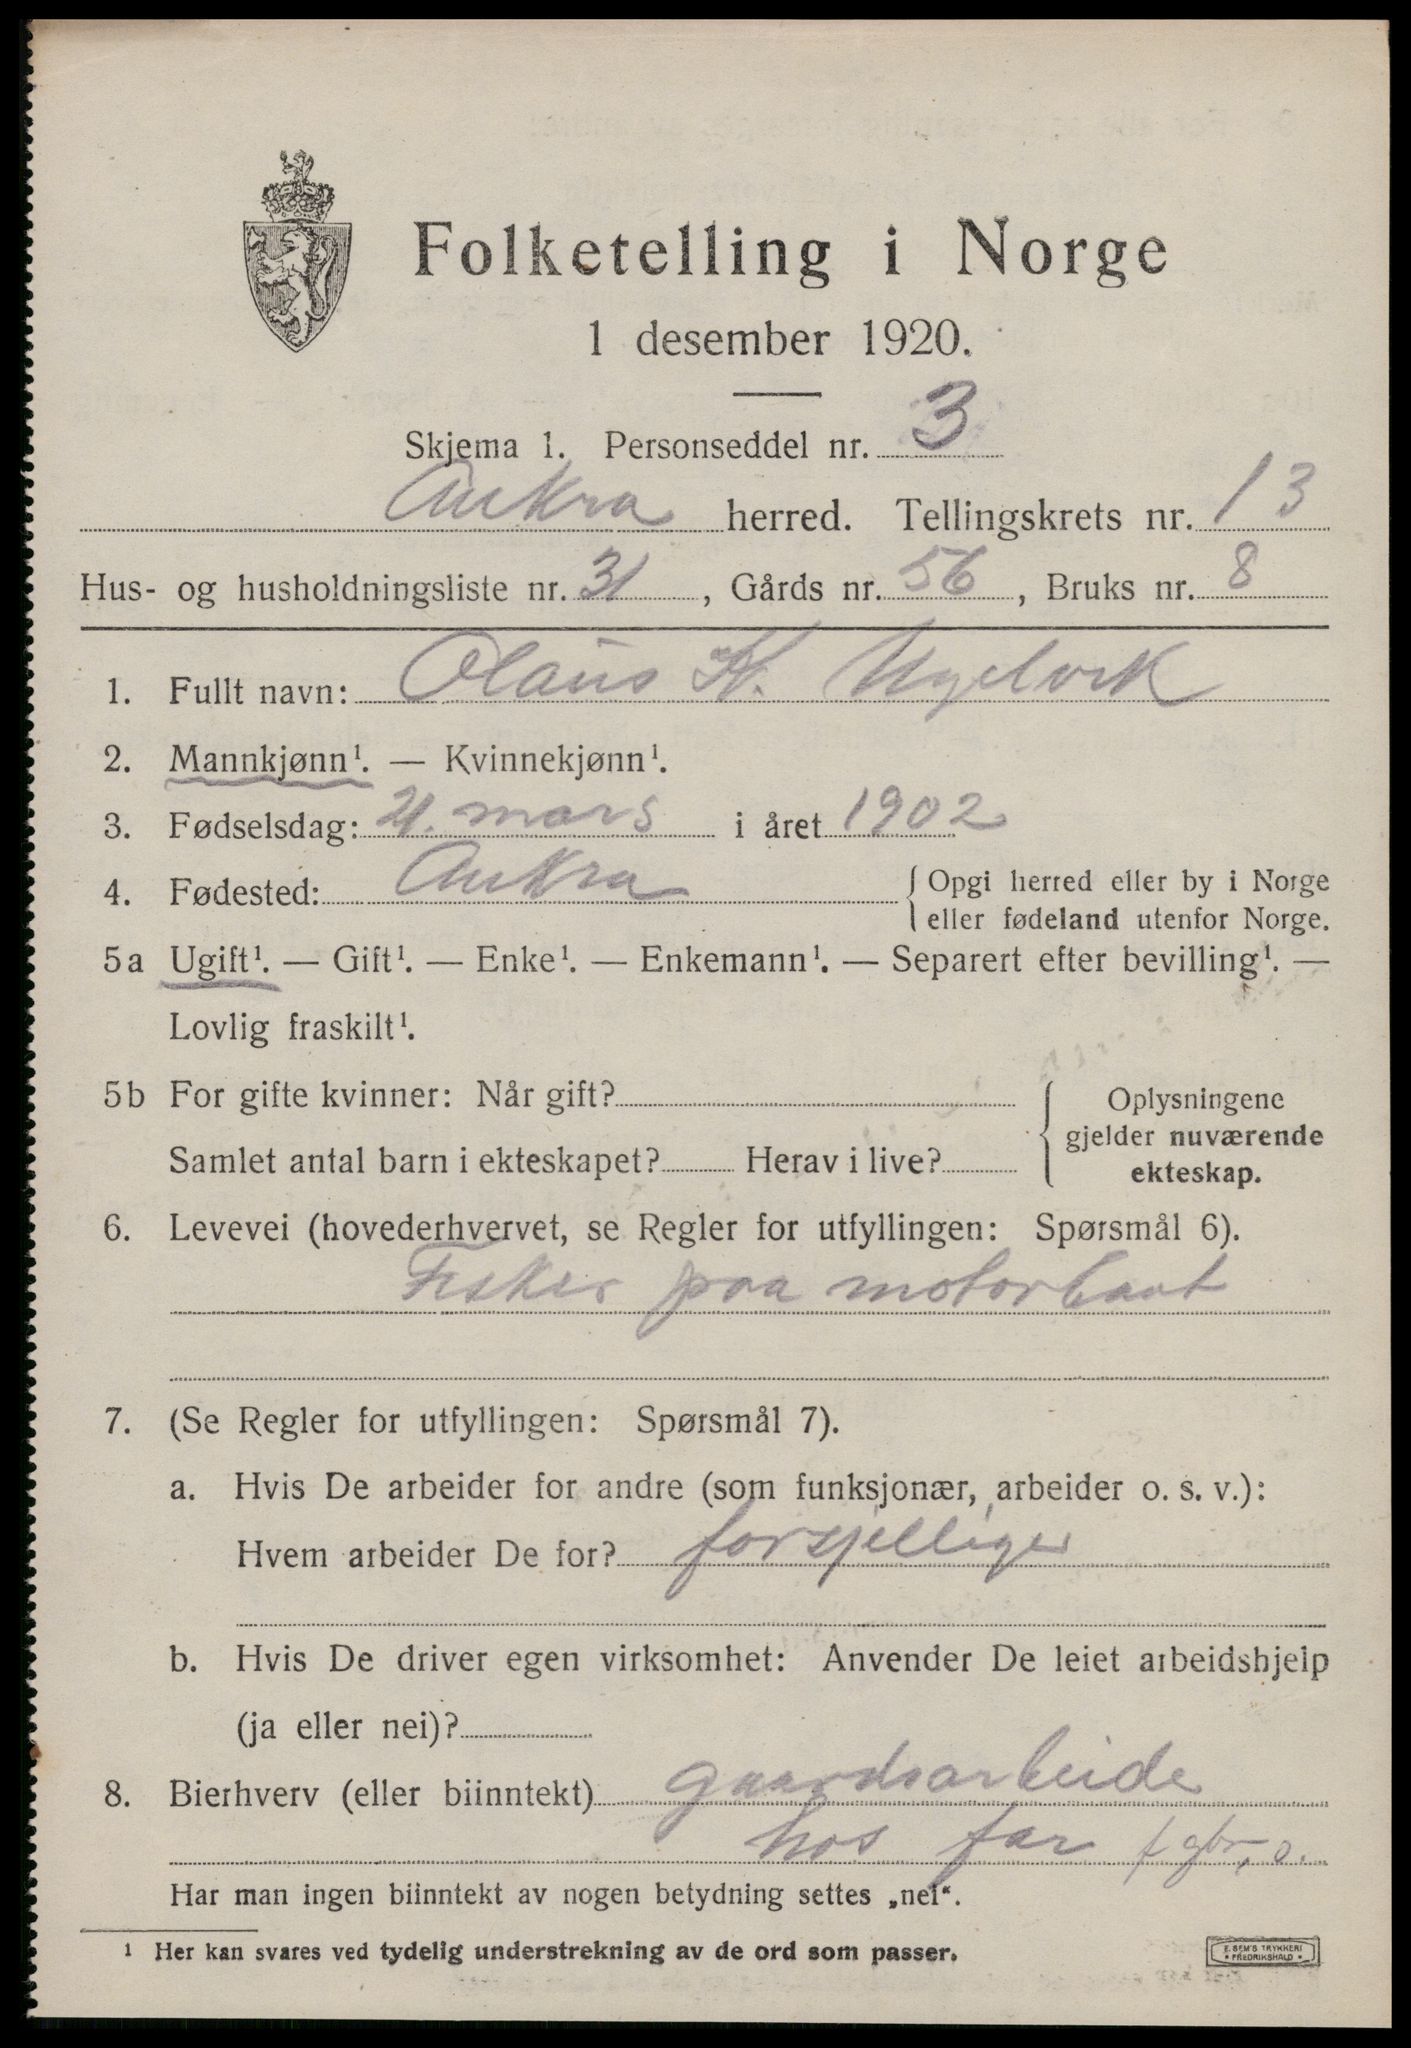 Folketelling i Norge
1 desember 1920.
Skjema 1. Personseddel nr. 3
Aukra herred. Tellingskrets nr. 13
Hus- og husholdningsliste nr. 31, Gårds nr. 56, Bruks nr. 8
1. Fullt navn: Olaus K.
2. Mannkjønn¹. — Kvinnekjønn¹.
3. Fødselsdag: 21. mars i året 1902
4. Fødested: Aukra { Opgi herred eller by i Norge
eller fødeland utenfor Norge.
5a Ugift¹. — Gift¹. — Enke¹. — Enkemann¹. — Separert efter bevilling¹. —
Lovlig fraskilt¹.
5b For gifte kvinner: Når gift?
Samlet antal barn i ekteskapet? Herav i live?
{ Oplysningene
gjelder nuværende
ekteskap.
6. Levevei (hovederhvervet, se Regler for utfyllingen: Spørsmål 6).
Fisker paa motorbaat
7. (Se Regler for utfyllingen: Spørsmål 7).
a. Hvis De arbeider for andre (som funksjonær, arbeider o. s. v.):
Hvem arbeider De for? forsjelliger
b. Hvis De driver egen virksomhet: Anvender De leiet arbeidshjelp
(ja eller nei)?
8. Bierhverv (eller biinntekt) gaardsarbeide
hos far f gbr. o.
Har man ingen biinntekt av nogen betydning settes „nei“.
1 Her kan svares ved tydelig understrekning av de ord som passer.
E. SEM'S TRYKKERI
• FREDRIKSHALD •